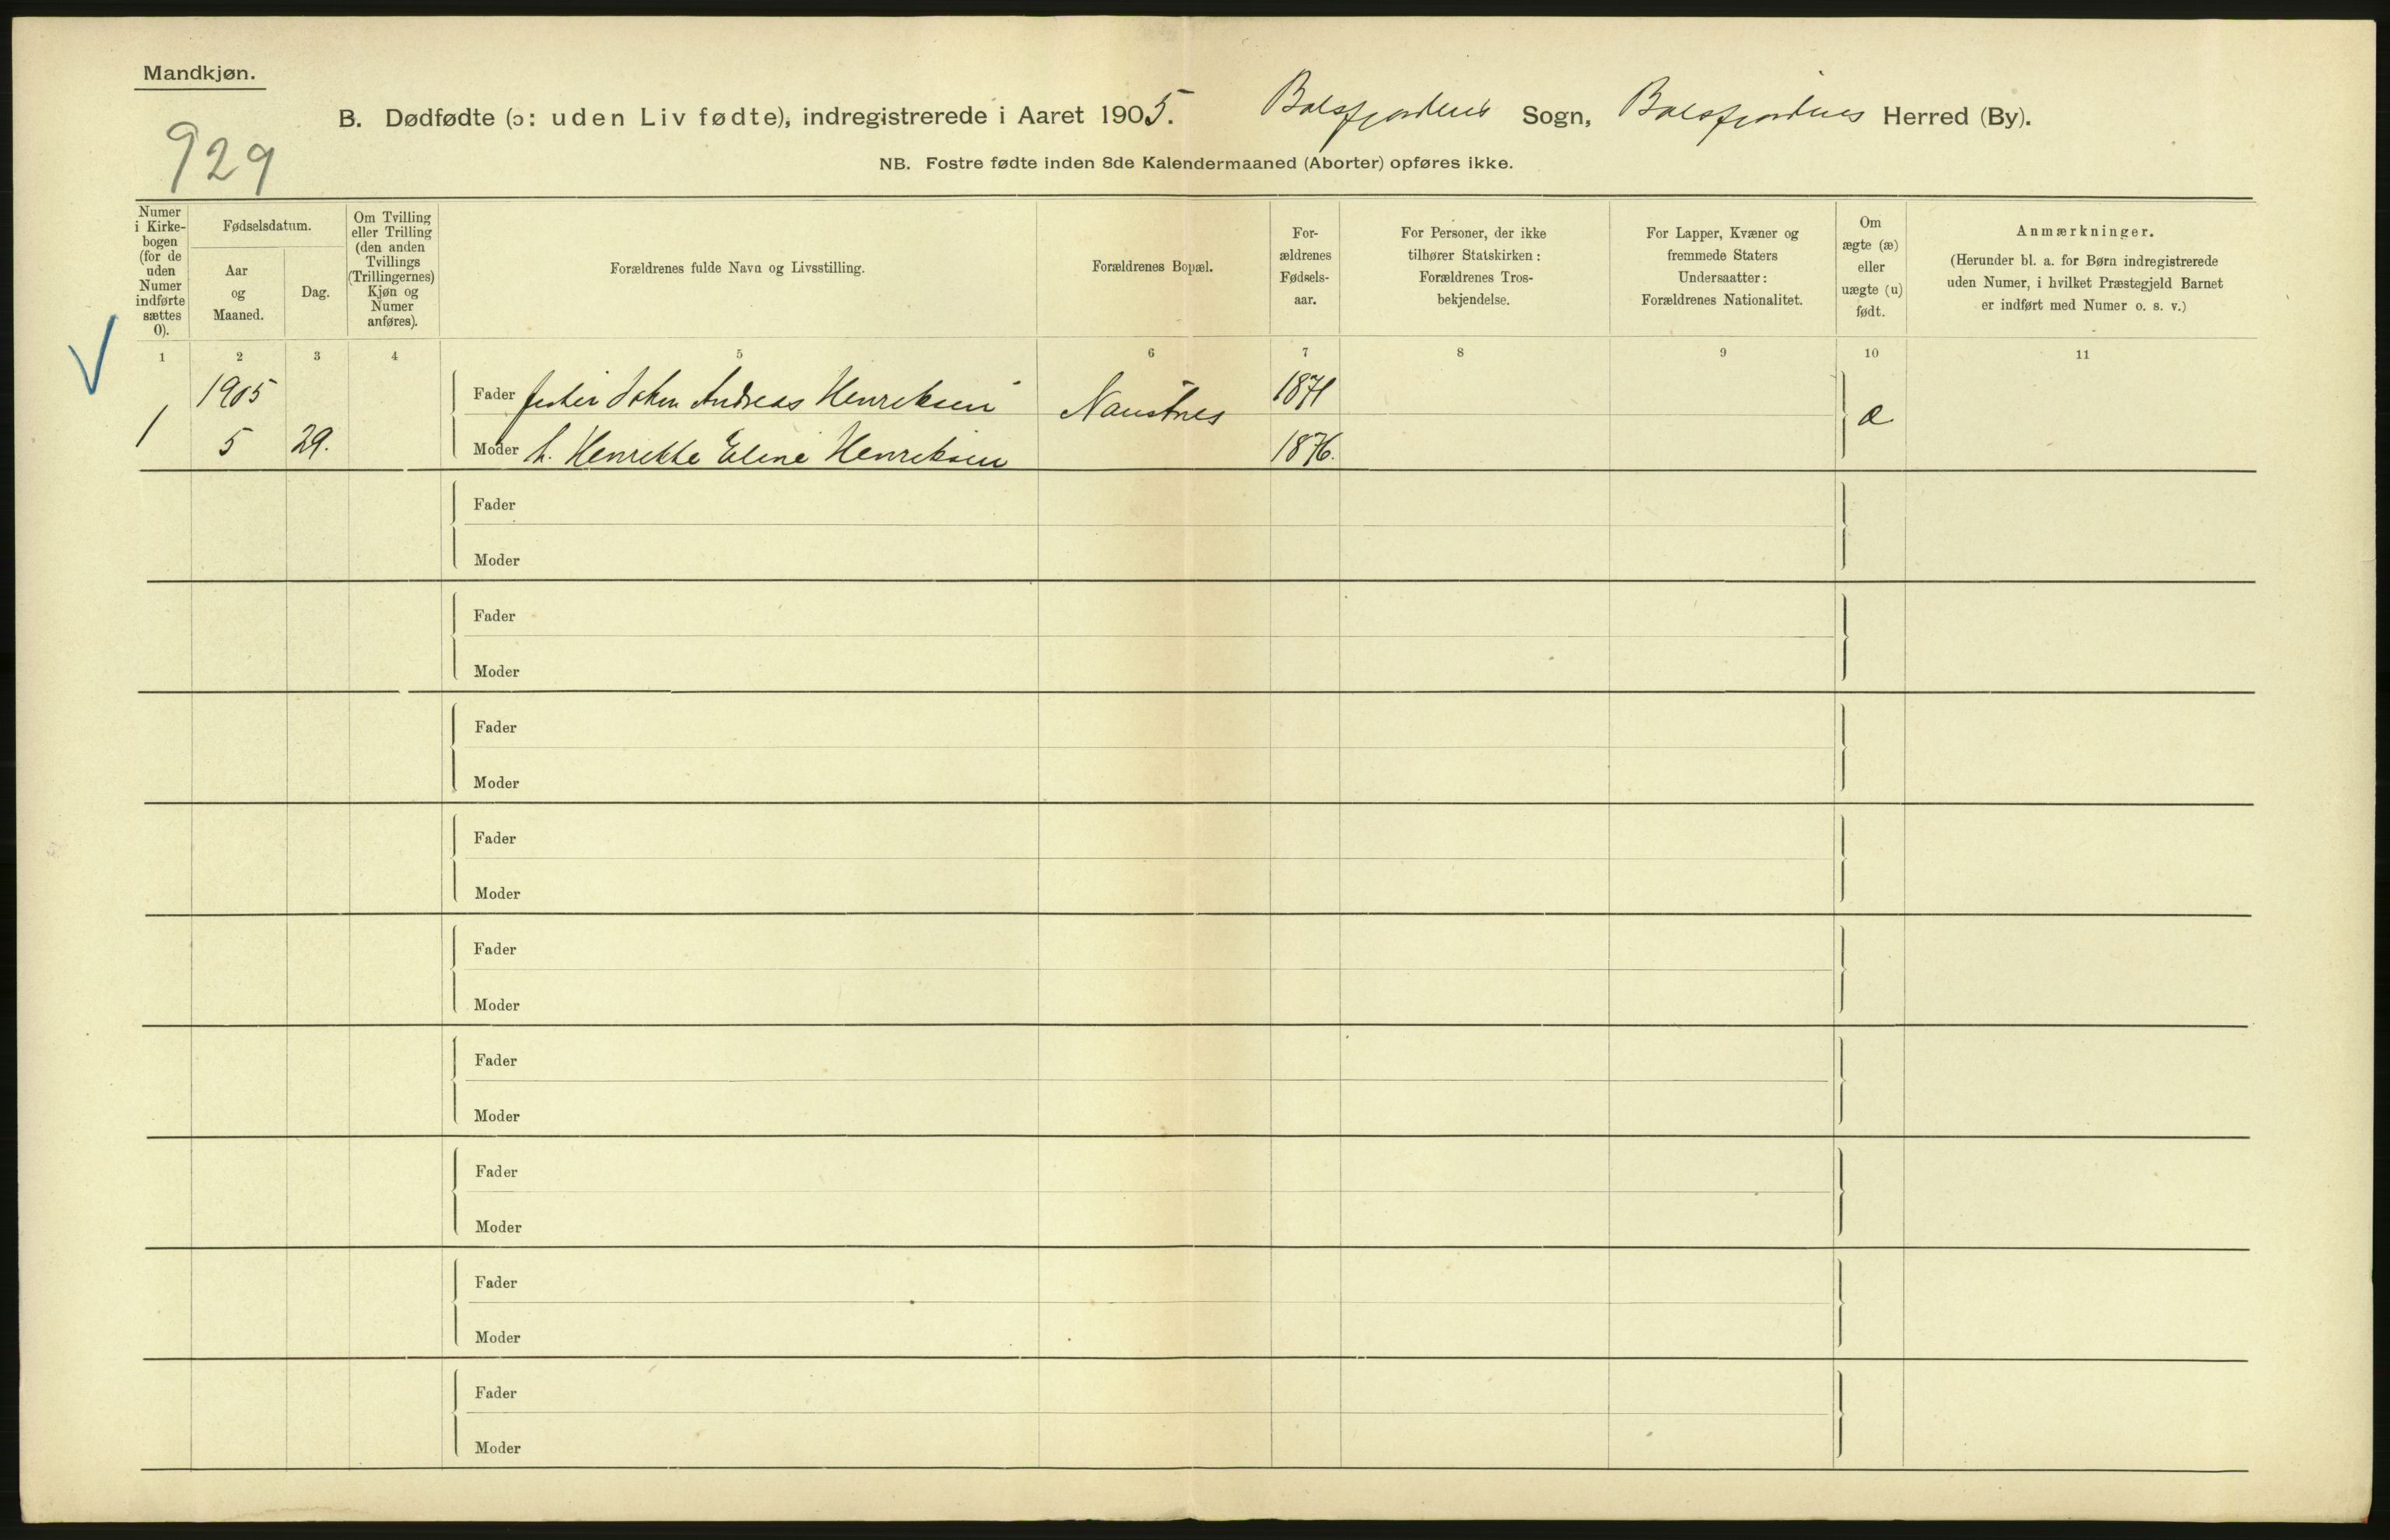 Mandkjøn.
B. Dødfødte (ɔ: uden Liv fødte), indregistrerede i Aaret 1905. Balsfjordens Sogn, Balsfjordens Herred (By).
929
NB. Fostre fødte inden 8de Kalendermaaned (Aborter) opføres ikke.
Numer
i Kirke-
bogen
(for de
uden
Numer
indførte
sættes
0).
Fødselsdatum.
Aar
og
Maaned.
Dag.
Om Tvilling
eller Trilling
(den anden
Tvillings
(Trillingernes)
Kjøn og
Numer
anføres).
Forældrenes fulde Navn og Livsstilling.
Forældrenes Bopæl.
For-
ældrenes
Fødsels-
aar.
For Personer, der ikke
tilhører Statskirken:
Forældrenes Tros-
bekjendelse.
For Lapper, Kvæner og
fremmede Staters
Undersaatter:
Forældrenes Nationalitet.
Om
ægte (æ)
eller
uægte (u)
født.
Anmærkninger.
(Herunder bl. a. for Børn indregistrerede
uden Numer, i hvilket Præstegjeld Barnet
er indført med Numer o. s. v.)
1 2 3 4 5 6 7 8 9 10 11
1905 Fader Johan Andreas Henriksen Naustnes 1871
1 5 29. Moder h. Henrikke Eline Henriksen 1876. æ
Fader
Moder
Fader
Moder
Fader
Moder
Fader
Moder
Fader
Moder
Fader
Moder
Fader
Moder
Fader
Moder
Fader
Moder